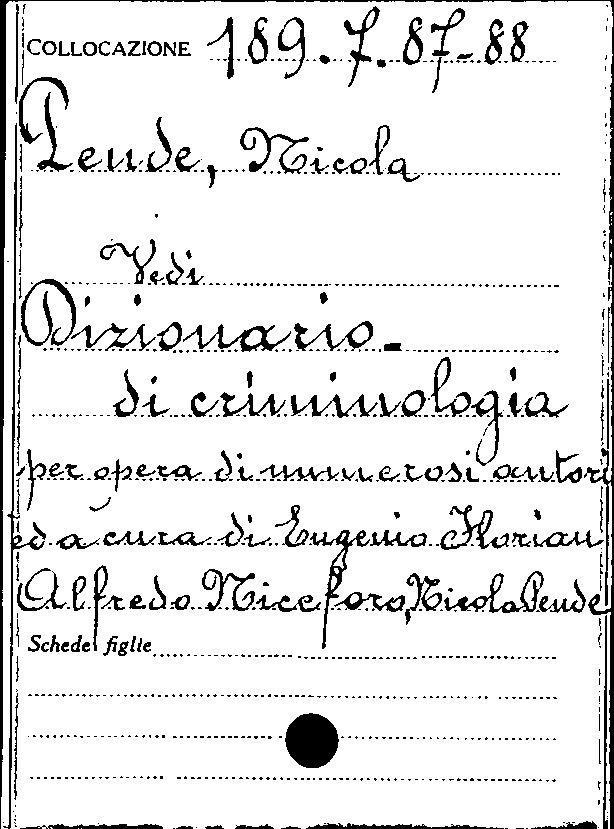 COLLOCAZIONE 189.7.87-88
Pende, Nicola
Vedi
Dizionario-
di criminologia
per opera di numerosi autori
ed a cura di Eugenio Florian
Alfredo Niceforo, Nicola Pende
Schede figlie